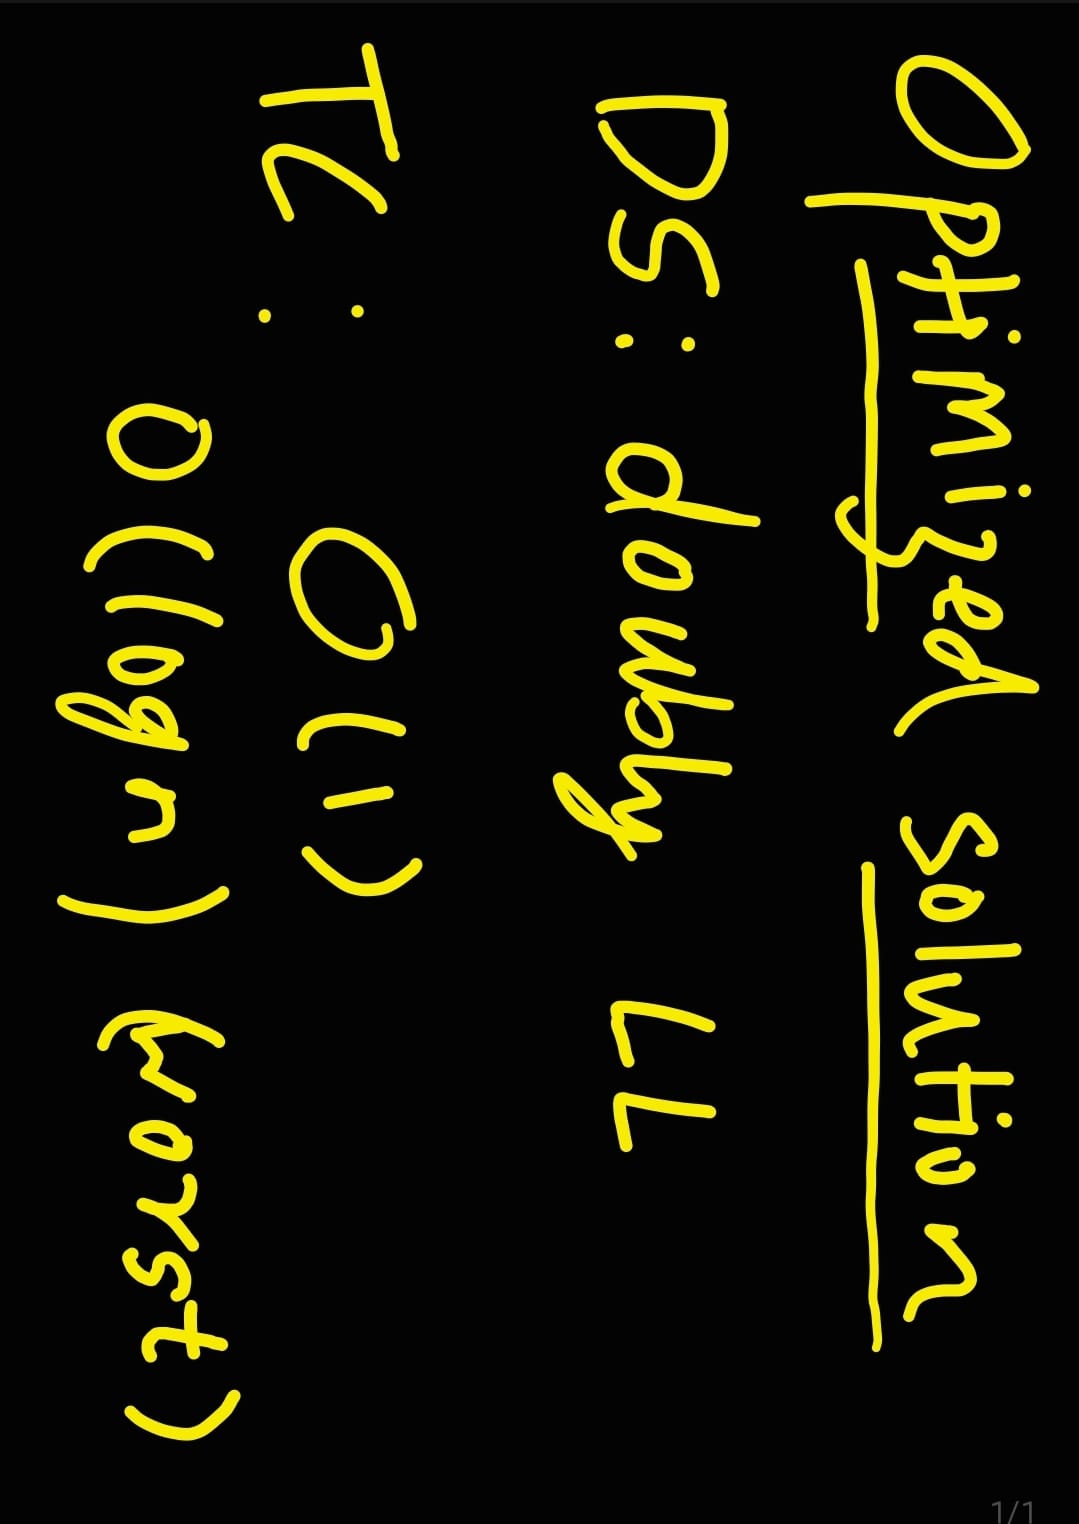 Optimized solution
DS: doubly LL
TC: O(1)
O(logn) (worst)
1/1